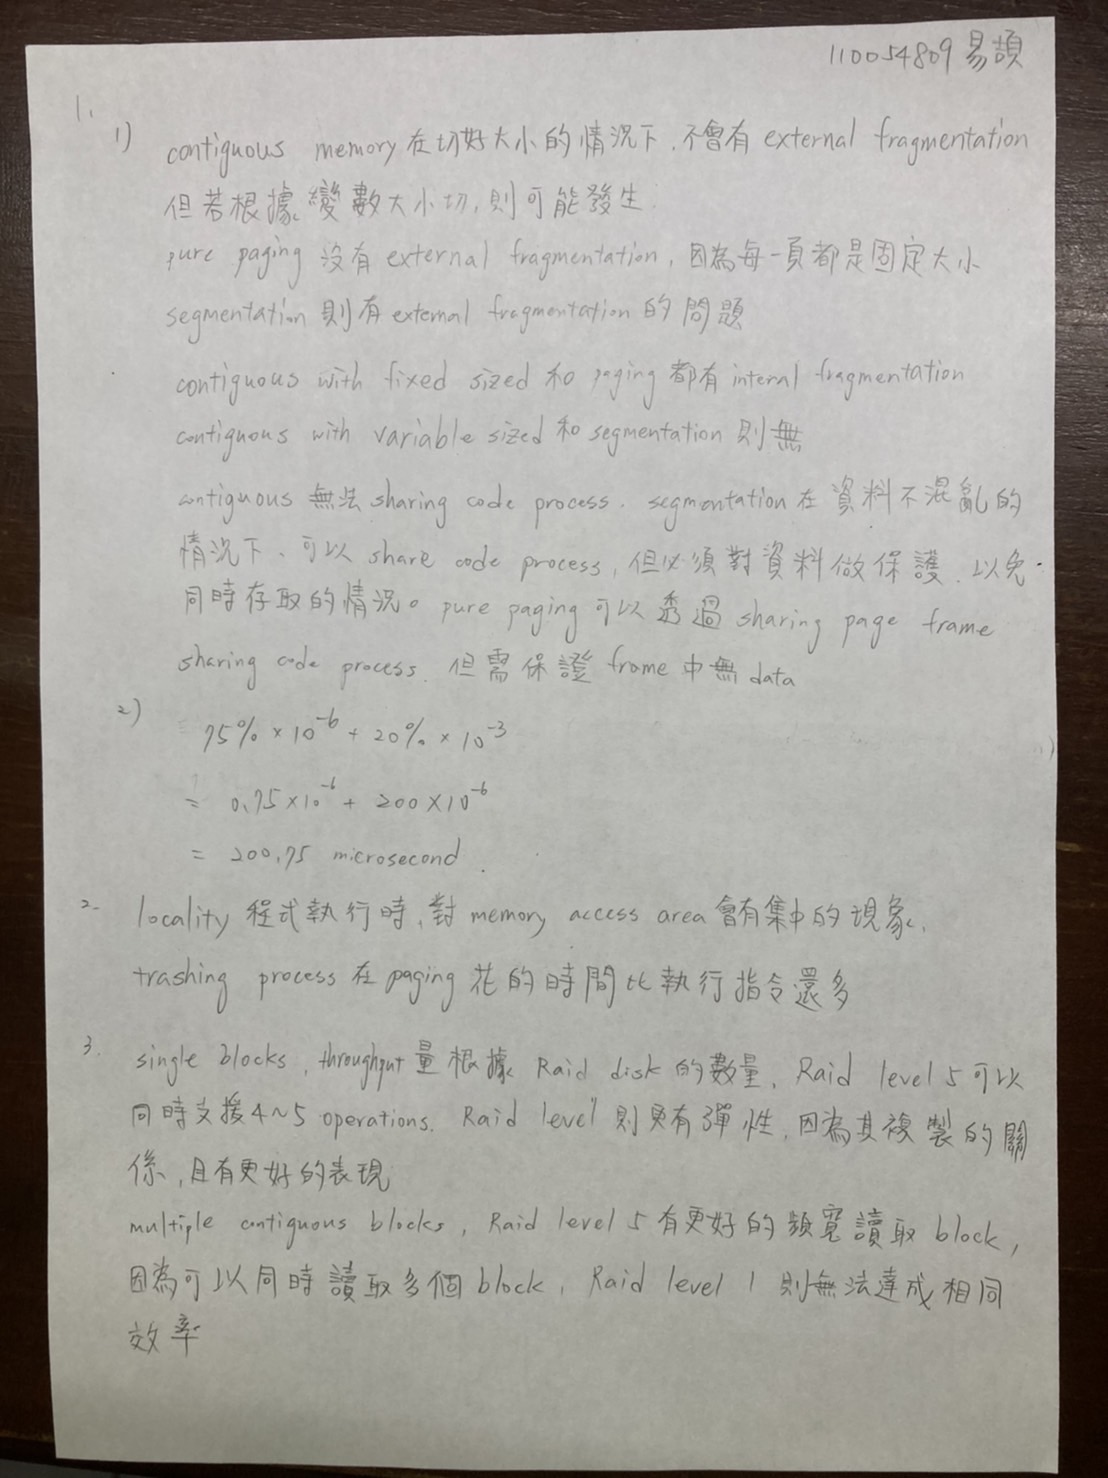 110054809 易頡
1.
1) contiguous memory 在切好大小的情況下,不會有 external fragmentation
但若根據變數大小切,則可能發生.
pure paging 沒有 external fragmentation, 因為每一頁都是固定大小
segmentation 則有 external fragmentation 的問題
contiguous with fixed sized 和 paging 都有 internal fragmentation
contiguous with variable sized 和 segmentation 則無
contiguous 無法 sharing code process. segmentation 在資料不混亂的
情況下、可以 share code process, 但必須對資料做保護、以免
同時存取的情況。pure paging 可以透過 sharing page frame
sharing code process. 但需保證 frame 中無 data
2) 75% × 10^-6 + 20% × 10^-3
= 0.75×10^-6 + 200×10^-6
= 200.75 microsecond.
2. locality 程式執行時,對 memory access area 會有集中的現象.
trashing process 在 paging 花的時間比執行指令還多
3. single blocks, throughput 量根據 Raid disk 的數量, Raid level 5 可以
同時支援 4~5 operations. Raid level 1 則更有彈性,因為其複製的關
係,且有更好的表現
multiple contiguous blocks, Raid level 5 有更好的頻寬讀取 block,
因為可以同時讀取多個 block, Raid level 1 則無法達成相同
效率